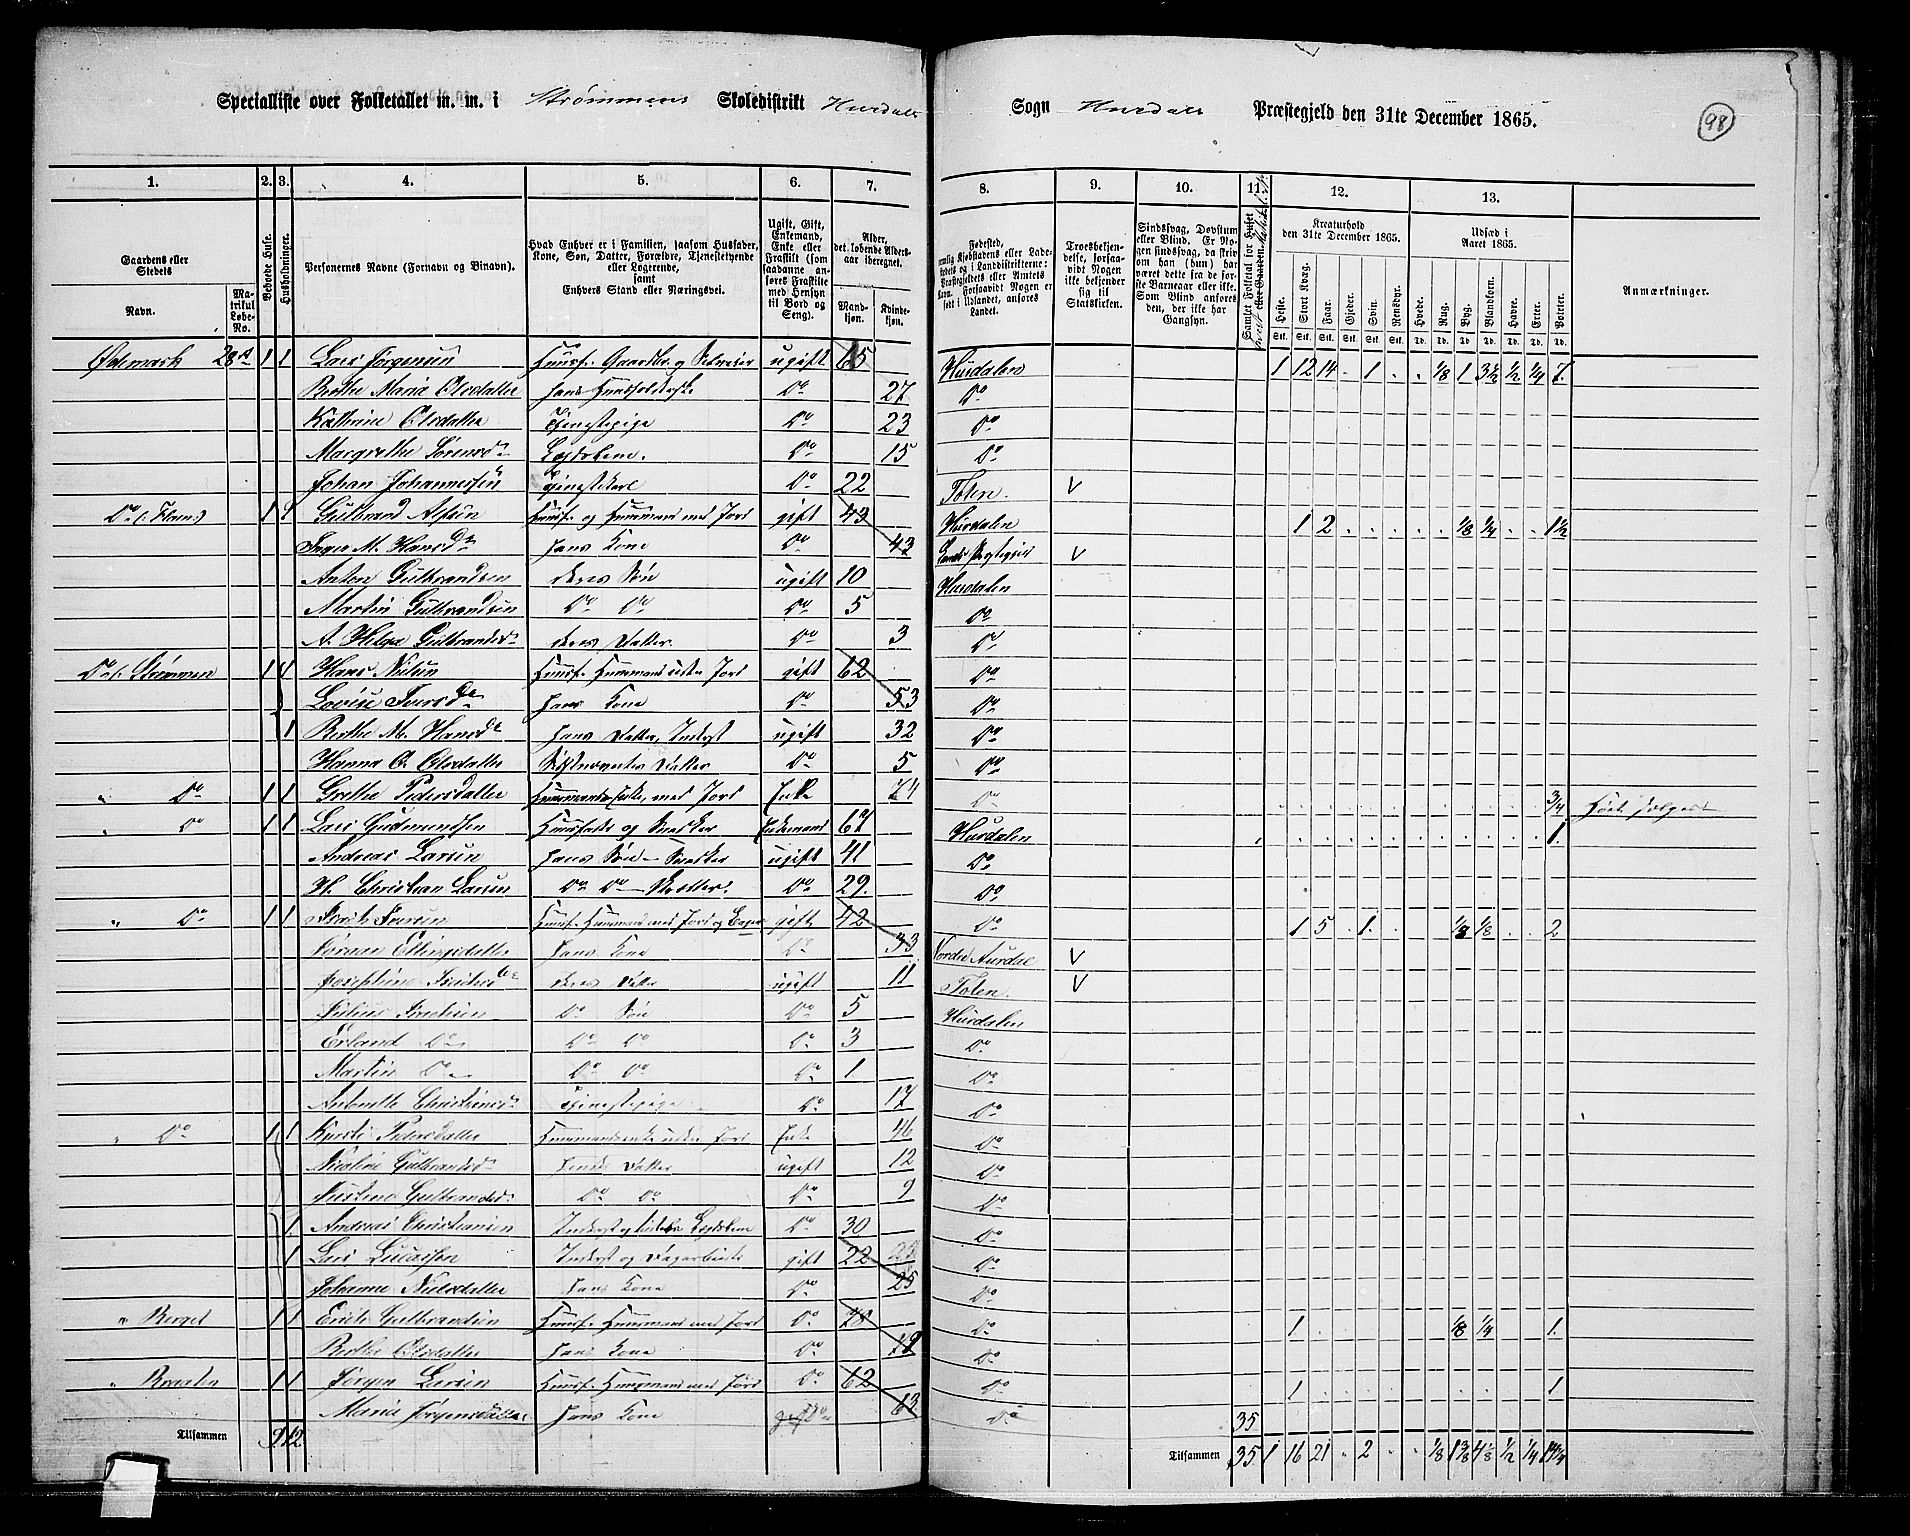 Specialliste over Folketallet m. m. i Strømmens Skoledistrikt Hurdals Sogn Hurdals Præstegjeld den 31te December 1865. 98
1. 2. 3. 4. 5. 6. 7. 8. 9. 10. 11. 12. 13.
Gaardens eller Stedets
Navn. Matrikul Løbe-No.
Beboede Huse.
Husholdninger.
Personernes Navne (Fornavn og Binavn).
Hvad Enhver er i Familien, saasom Husfader, Kone, Søn, Datter, Forældre, Tjenestetyende eller Logerende, samt Enhvers Stand eller Næringsvei.
Ugift, Gift, Enkemand, Enke eller Fraskilt (som saadanne anføres Fraskilte med Hensyn til Bord og Seng).
Alder, det løbende Alders-aar iberegnet.
Mand-kjøn. Kvinde-kjøn.
Fødested,
Troesbekjendelse, forsaavidt Nogen ikke bekjender sig til Statskirken.
Sindssvag, Døvstum eller Blind. Er Nogen sindssvag, da skrives om han (hun) har været dette fra de første Barneaar eller ikke. Som Blind anføres de, der ikke har Gangsyn.
Kreaturhold den 31te December 1865.
Heste. Stort Kvæg. Faar. Gjeder. Svin. Rensdyr.
Udsæd i Aaret 1865.
Hvede. Rug. Byg. Blandkorn. Havre. Erter. Poteter.
Anmærkninger.
Ødemark 28a 1 1 Lars Jørgensen Huusf. Gaardbr. og Selveier ugift 65 Hurdalen 1 12 14 . 1 . . 1/8 1 3 1/2 1/2 1/4 7.
Berthe Maria Olsdatter hans Huusholderske Do 27 Do
Kathrine Olsdatter Tjenestepige Do 23 Do
Margrethe Sørensdr Lægdslem. Do 15 Do
Johan Johannessen Tjenestekarl Do 22 Toten. V
1 1 Gulbrand Huusf. og Huusmand med Jord gift 43 Hurdalen 1 2 . . . . . 1/8 1/4 . . 1 1/2
Inger M. Hansdr hans Kone Do 43 V
Anton Gulbrandsen deres Søn ugift 10 Hurdalen
Martin Gulbrandsen Do Do Do 5 Do
A. Helga Gulbrandsdr deres Datter. Do 3 Do
Do Strømmen 1 1 Hans Nilsen Huusf. Huusmand uden Jord gift 62 Do
Lovise Iversdr hans Kone Do 53 Do
1 Berthe M. Hansdr hans Datter, Inderst ugift 32 Do
Hanna O. Olsdatter Sidstnævntes Datter Do 5 Do
" Do 1 1 Grethe Pedersdatter Huusmandsenke med Jord Enke 74 Do 3/4
" Do 1 1 Lars Gudmundsen Huusfader og Enkemand 67 Hurdalen 1.
Andreas Larsen hans Søn ugift 41 Do
H. Christian Larsen Do Do Do 29. Do
" Do 1 1 Huusf. Huusmand med Jord og gift 42 Do 1 5 . 1. . 1/8 1/8 . . 2
Ellingsdatter hans Kone Do 33 Nordre Aurdal V
Josephine deres Datter ugift 11 Toten. V
Julius Do Søn Do 5 Hurdalen
Erland Do Do Do Do 3 Do
Martin Do Do Do Do 1 Do
Christiansdr Tjenestepige Do 17 Do
" Do 1 1 Kirsti Pedersdatter Huusmandsenke uden Jord Enke 46 Do
Nicoline Gulbrandsdr hendes Datter ugift 12 Do
Gulbrandsdr Do Do Do 9 Do
1. Andreas Christiansen Inderst og Lægdslem Do 30 Do
1 Lars Lucassen Inderst og Dagarbeider gift 22 Do
Johanne Nielsdatter hans Kone Do 25 Do
" Berget 1 1 Gulbrandsen Huusf. Huusmand med Jord Do Do 1 1/8 1/4 1.
Berthe Olsdatter hans Kone Do Do
" Braaten 1 1 Jørgen Larsen Huusf. Huusmand med Jord Do 62 Do 1 1
Maria Jørgensdatter hans Kone Do 63 Do 35
Tilsammen 9 12 Tilsammen 35 1 16 21 . 2 . . 1/8 1 3/8 4 1/8 1/2 1/4 14 1/4